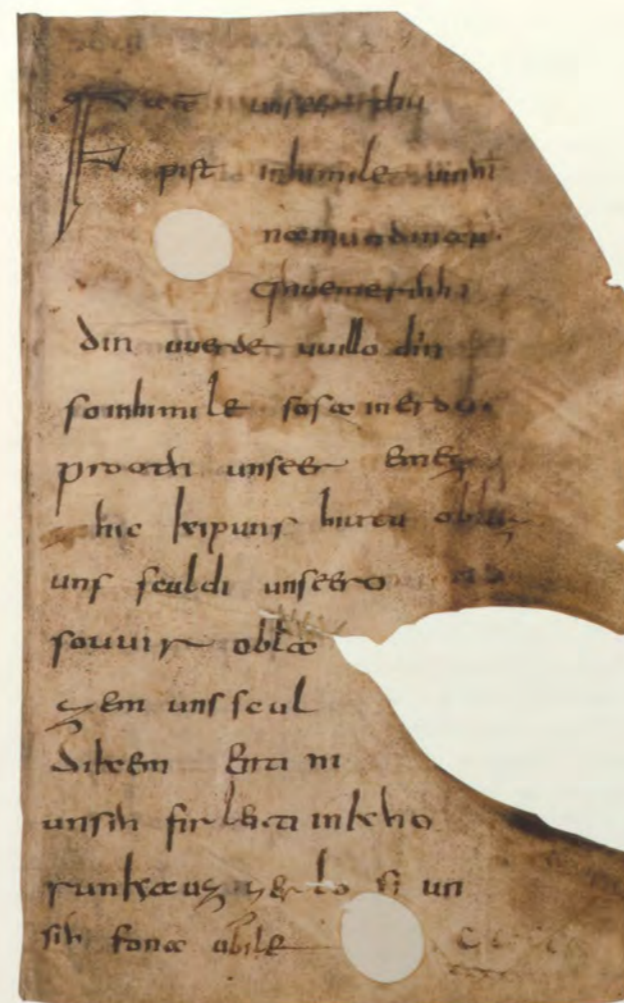 Fater unseer thu
pist in himile uuihi
namun dinan
qhueme rihhi
din uuerde uuillo diin
so in himile sosa in erdu
prooth unseer emez
hic kip uns hiutu oblaz
uns sculdi unseero
so uuir obla
zem uns scul
dikem enti ni
unsih firleiti in kho
runka uz zer lo si un
sih fona ubile